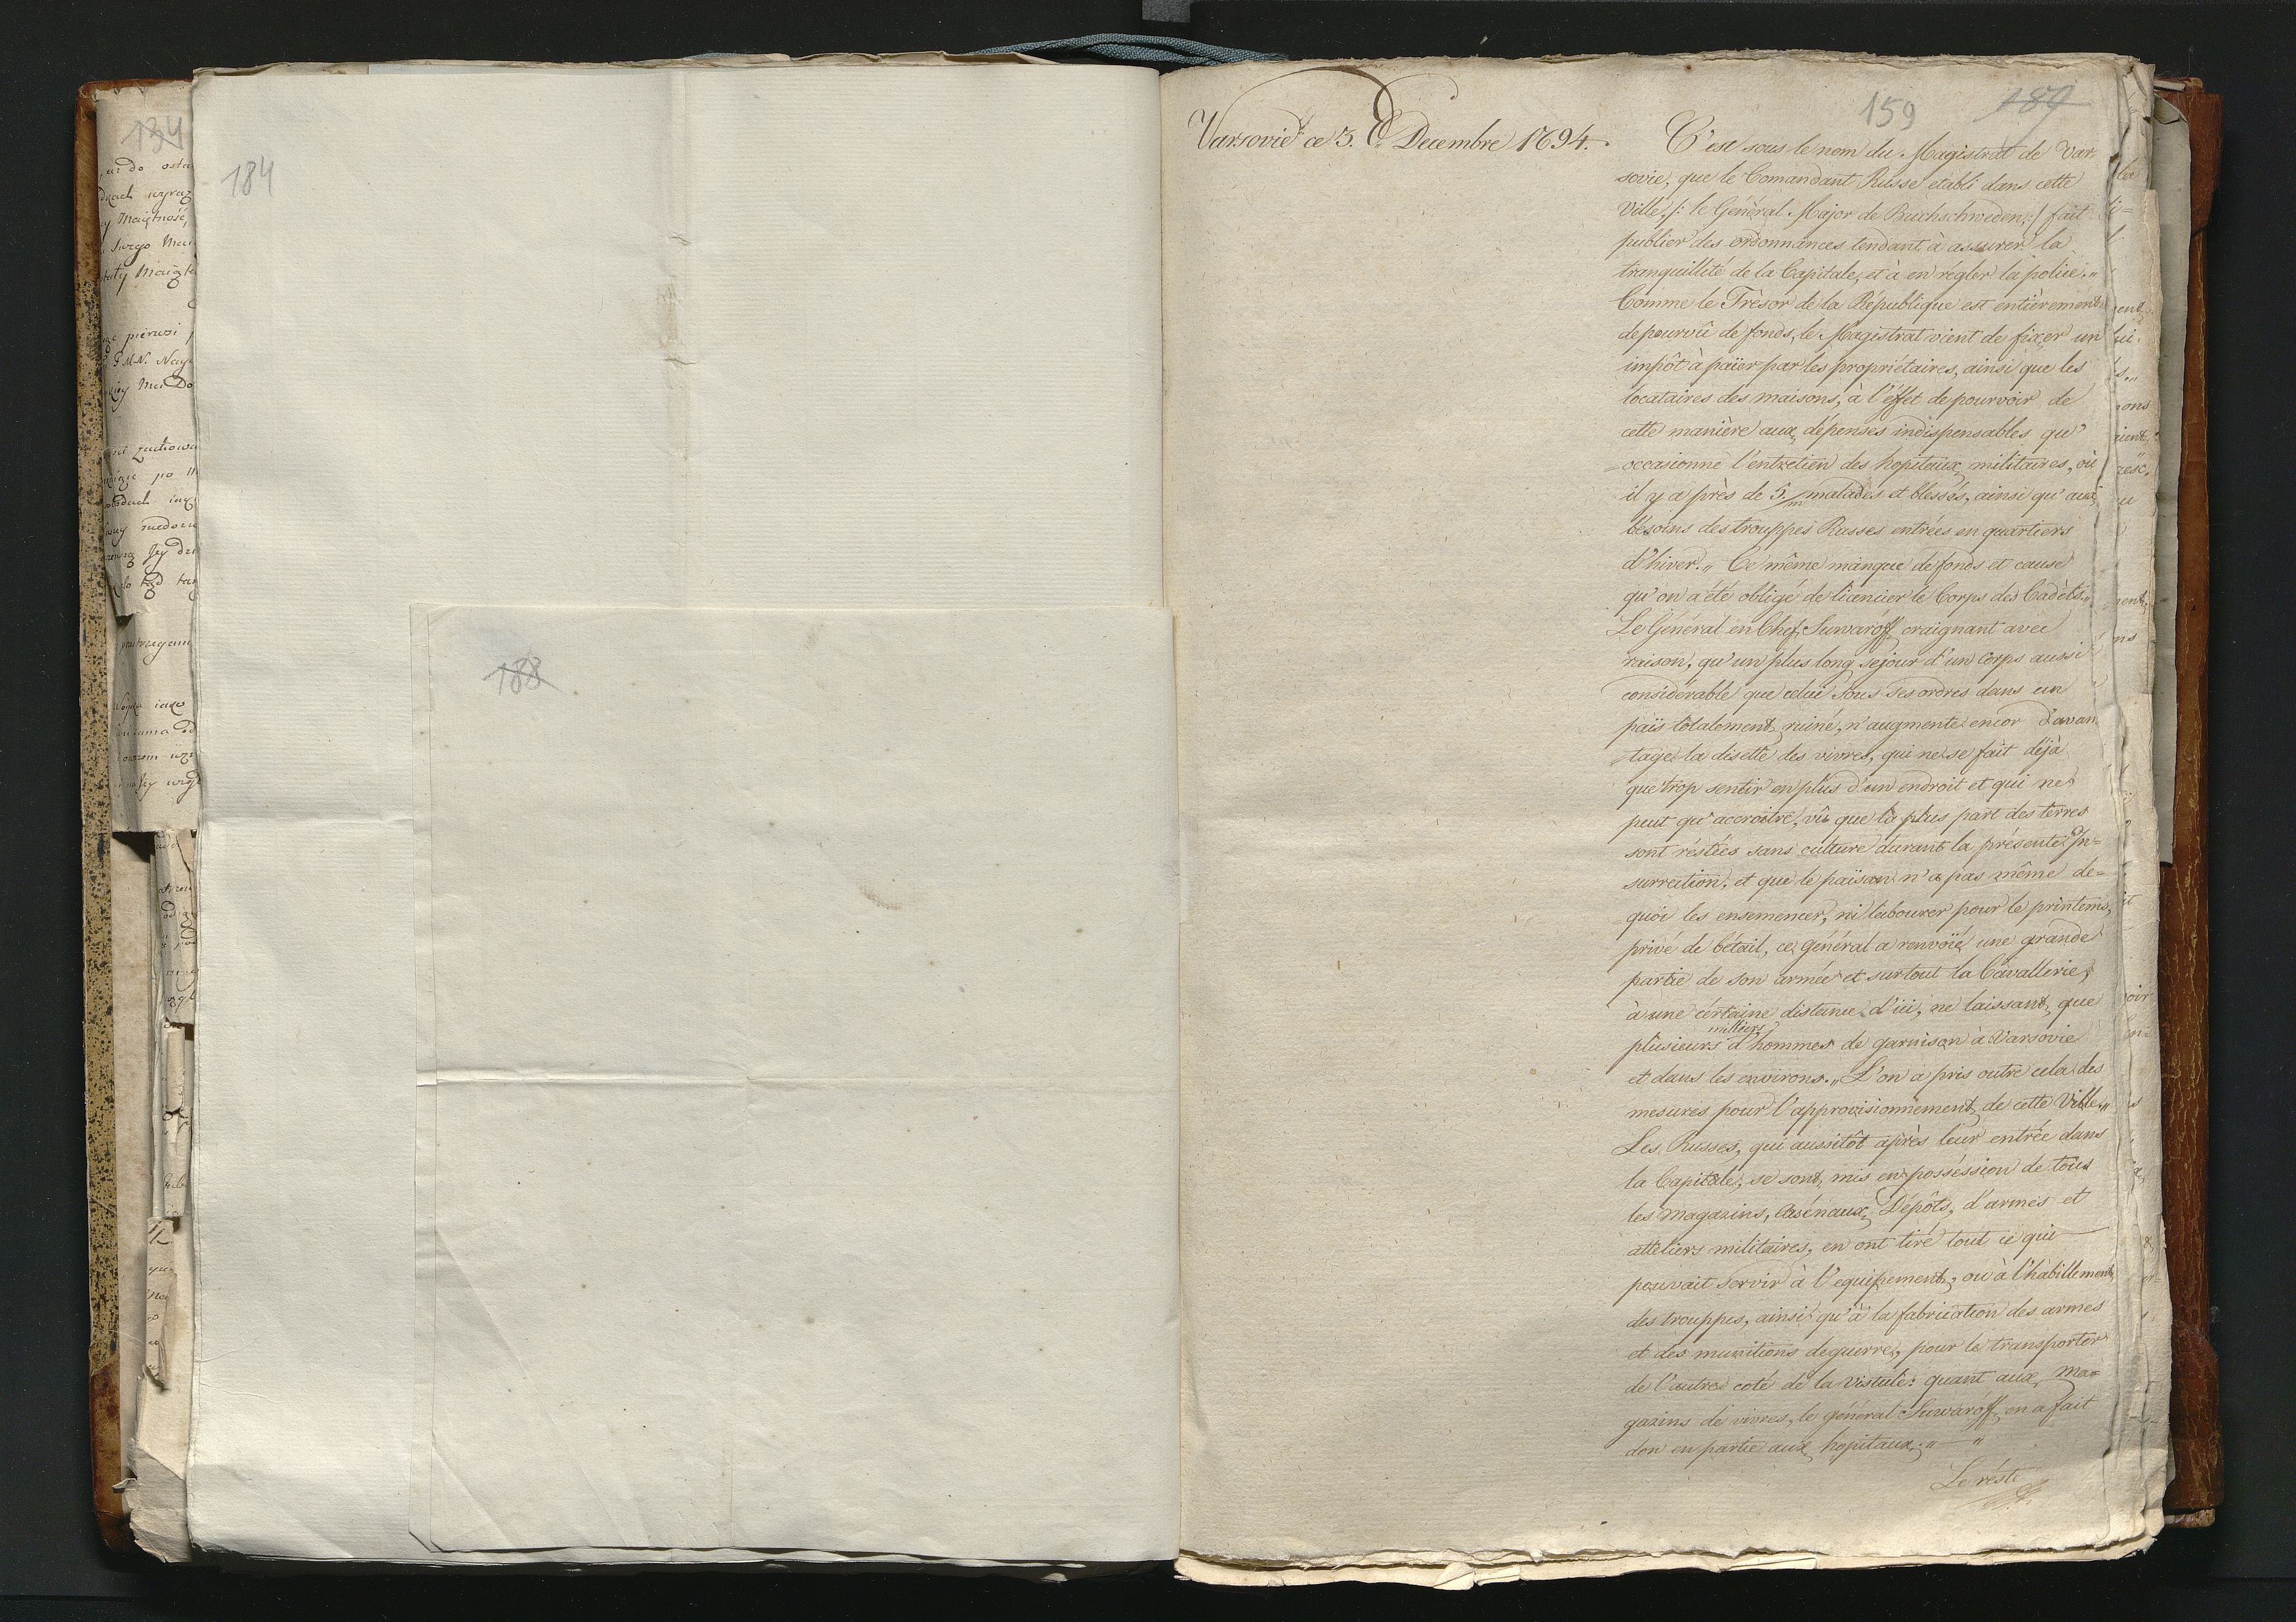 134
184
188
159
189
Varsovie ce 3. Decembre 1694.
C'est sous le nom du Magistrat de Var-
sovie, que le Comandant Russe etabli dans cette
Ville /: le Général Major de Buchschweden :/ fait
publier des ordonnances tendant à assurer la
tranquillité de la Capitale, et à en régler la police."
Comme le Trèsor de la République est entièrement
depourvû de fonds, le Magistrat vient de fixer un
impôt à païer par les propriétaires, ainsi que les
locataires des maisons, à l'éffet de pourvoir de
cette manière aux dépenses indispensables qu'
=occasionne l'entretien des hopitaux militaires, où
il y a près de 5/m malades et blessés, ainsi qu'aux
besoins des trouppes Russes entrées en quartiers
d'hiver." Ce même manque de fonds est cause
qu'on a été obligé de licencier le Corps des Cadèts."
Le Général en Chef Suwaroff craignant avec
raison, qu'un plus long sejour d'un Corps aussi
considerable que celui sous ses ordres dans un
païs totalement ruiné, n'augmente encor d'avan
tage la disette des vivres, qui ne se fait déjà
que trop sentir en plus d'un endroit et qui ne
peut qu'accroitre, vû que la plus part des terres
sont réstées sans culture durant la présente In=
surrection, et que le païsan n'a pas même de=
quoi les ensemencer, ni labourer pour le printems,
privé de bétail, ce général a renvoïé une grande
partie de son armée et surtout la Cavallerie,
à une cértaine distance d'ici, ne laissant que
milliers
plusieurs d'hommes de garnison à Varsovie
et dans les environs." L'on a pris outre cela des
mesures pour l'approvisionnement de cette Ville."
Les Russes, qui aussitôt après leur entrée dans
la Capitale, se sont mis en posséssion de tous
les magazins, Arsénaux, Dépôts, d'armes et
atteliers militaires, en ont tiré tout ce qui
pouvait servir à l'equipement, ou à l'habillement
des trouppes, ainsi qu'à la fabrication des armes
et des munitions de guerre, pour le transporter
de l'autre coté de la Vistule: quant aux Ma=
gazins de vivres, le général Suwaroff en a fait
don en partie aux hopitaux."
Le réste